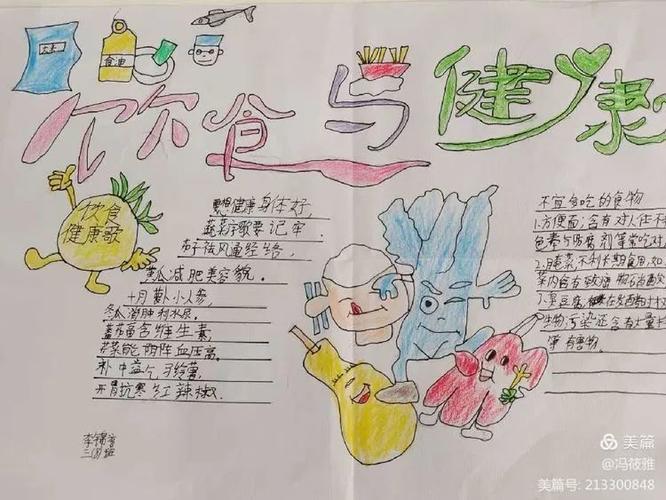 大米
食油
饮食与健康
饮食
健康歌
要想健康身体好,
蔬菜子歌要记牢.
祛风通经络,
黄瓜减肥美容貌.
十月萝卜小人参,
冬瓜消肿利水尿.
蕃茄富含维生素,
芹菜能 血压高.
补中益气
开胃抗寒 红辣椒.
三 班
不宜多吃的食物
1.方便面:含有对人体不
色素与防腐剂等常吃对
2.腌菜不利长期食用,如
菜内含有致癌物
3.臭豆腐 在发酵
生物污染还含有大量
等有害物.
美篇
@冯筱雅
美篇号: 213300848